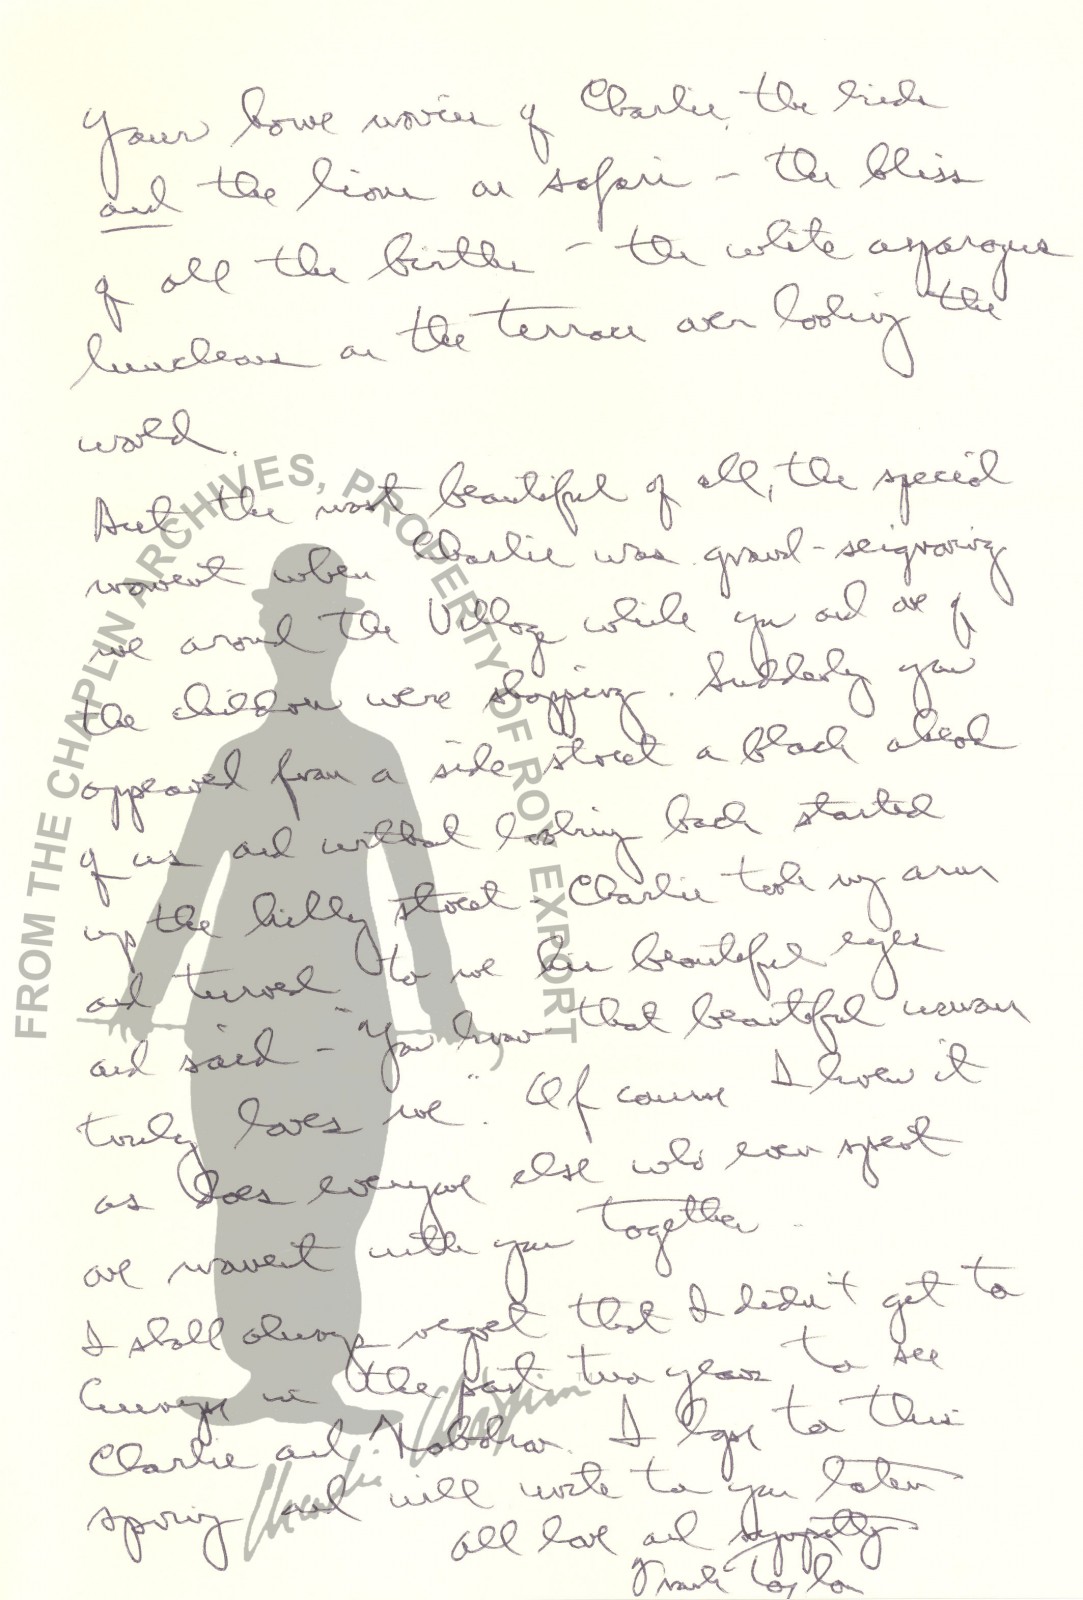 Your home movies of Charlie, the kids
and the lions on safari – the bliss
of all the births – the white asparagus
luncheons on the terrace over looking the
world.
But the most beautiful of all, the special
moment when Charlie was grand-seignoring
me around the Village while you and one of
the children were shopping. Suddenly you
appeared from a side street a block ahead
of us and without looking back started
up the hilly street. Charlie took my arm
and turned to me his beautiful eyes
and said – "You know that beautiful woman
truly loves me". Of course I knew it
as does everyone else who ever spent
one moment with you together.
I shall always regret that I didn't get to
Europe in the past two years to see
Charlie and. I hope to this
spring and will write to you later
All love and sympathy
Frank Taylor
FROM THE CHAPLIN ARCHIVES, PROPERTY OF ROY EXPORT
Charlie Chaplin